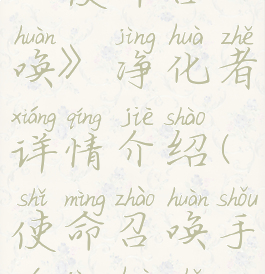 huàn jìng huà zhě
唤》净化者
xiáng qíng jiè shào
详情介绍(
shǐ mìng zhào huàn shǒu
使命召唤手